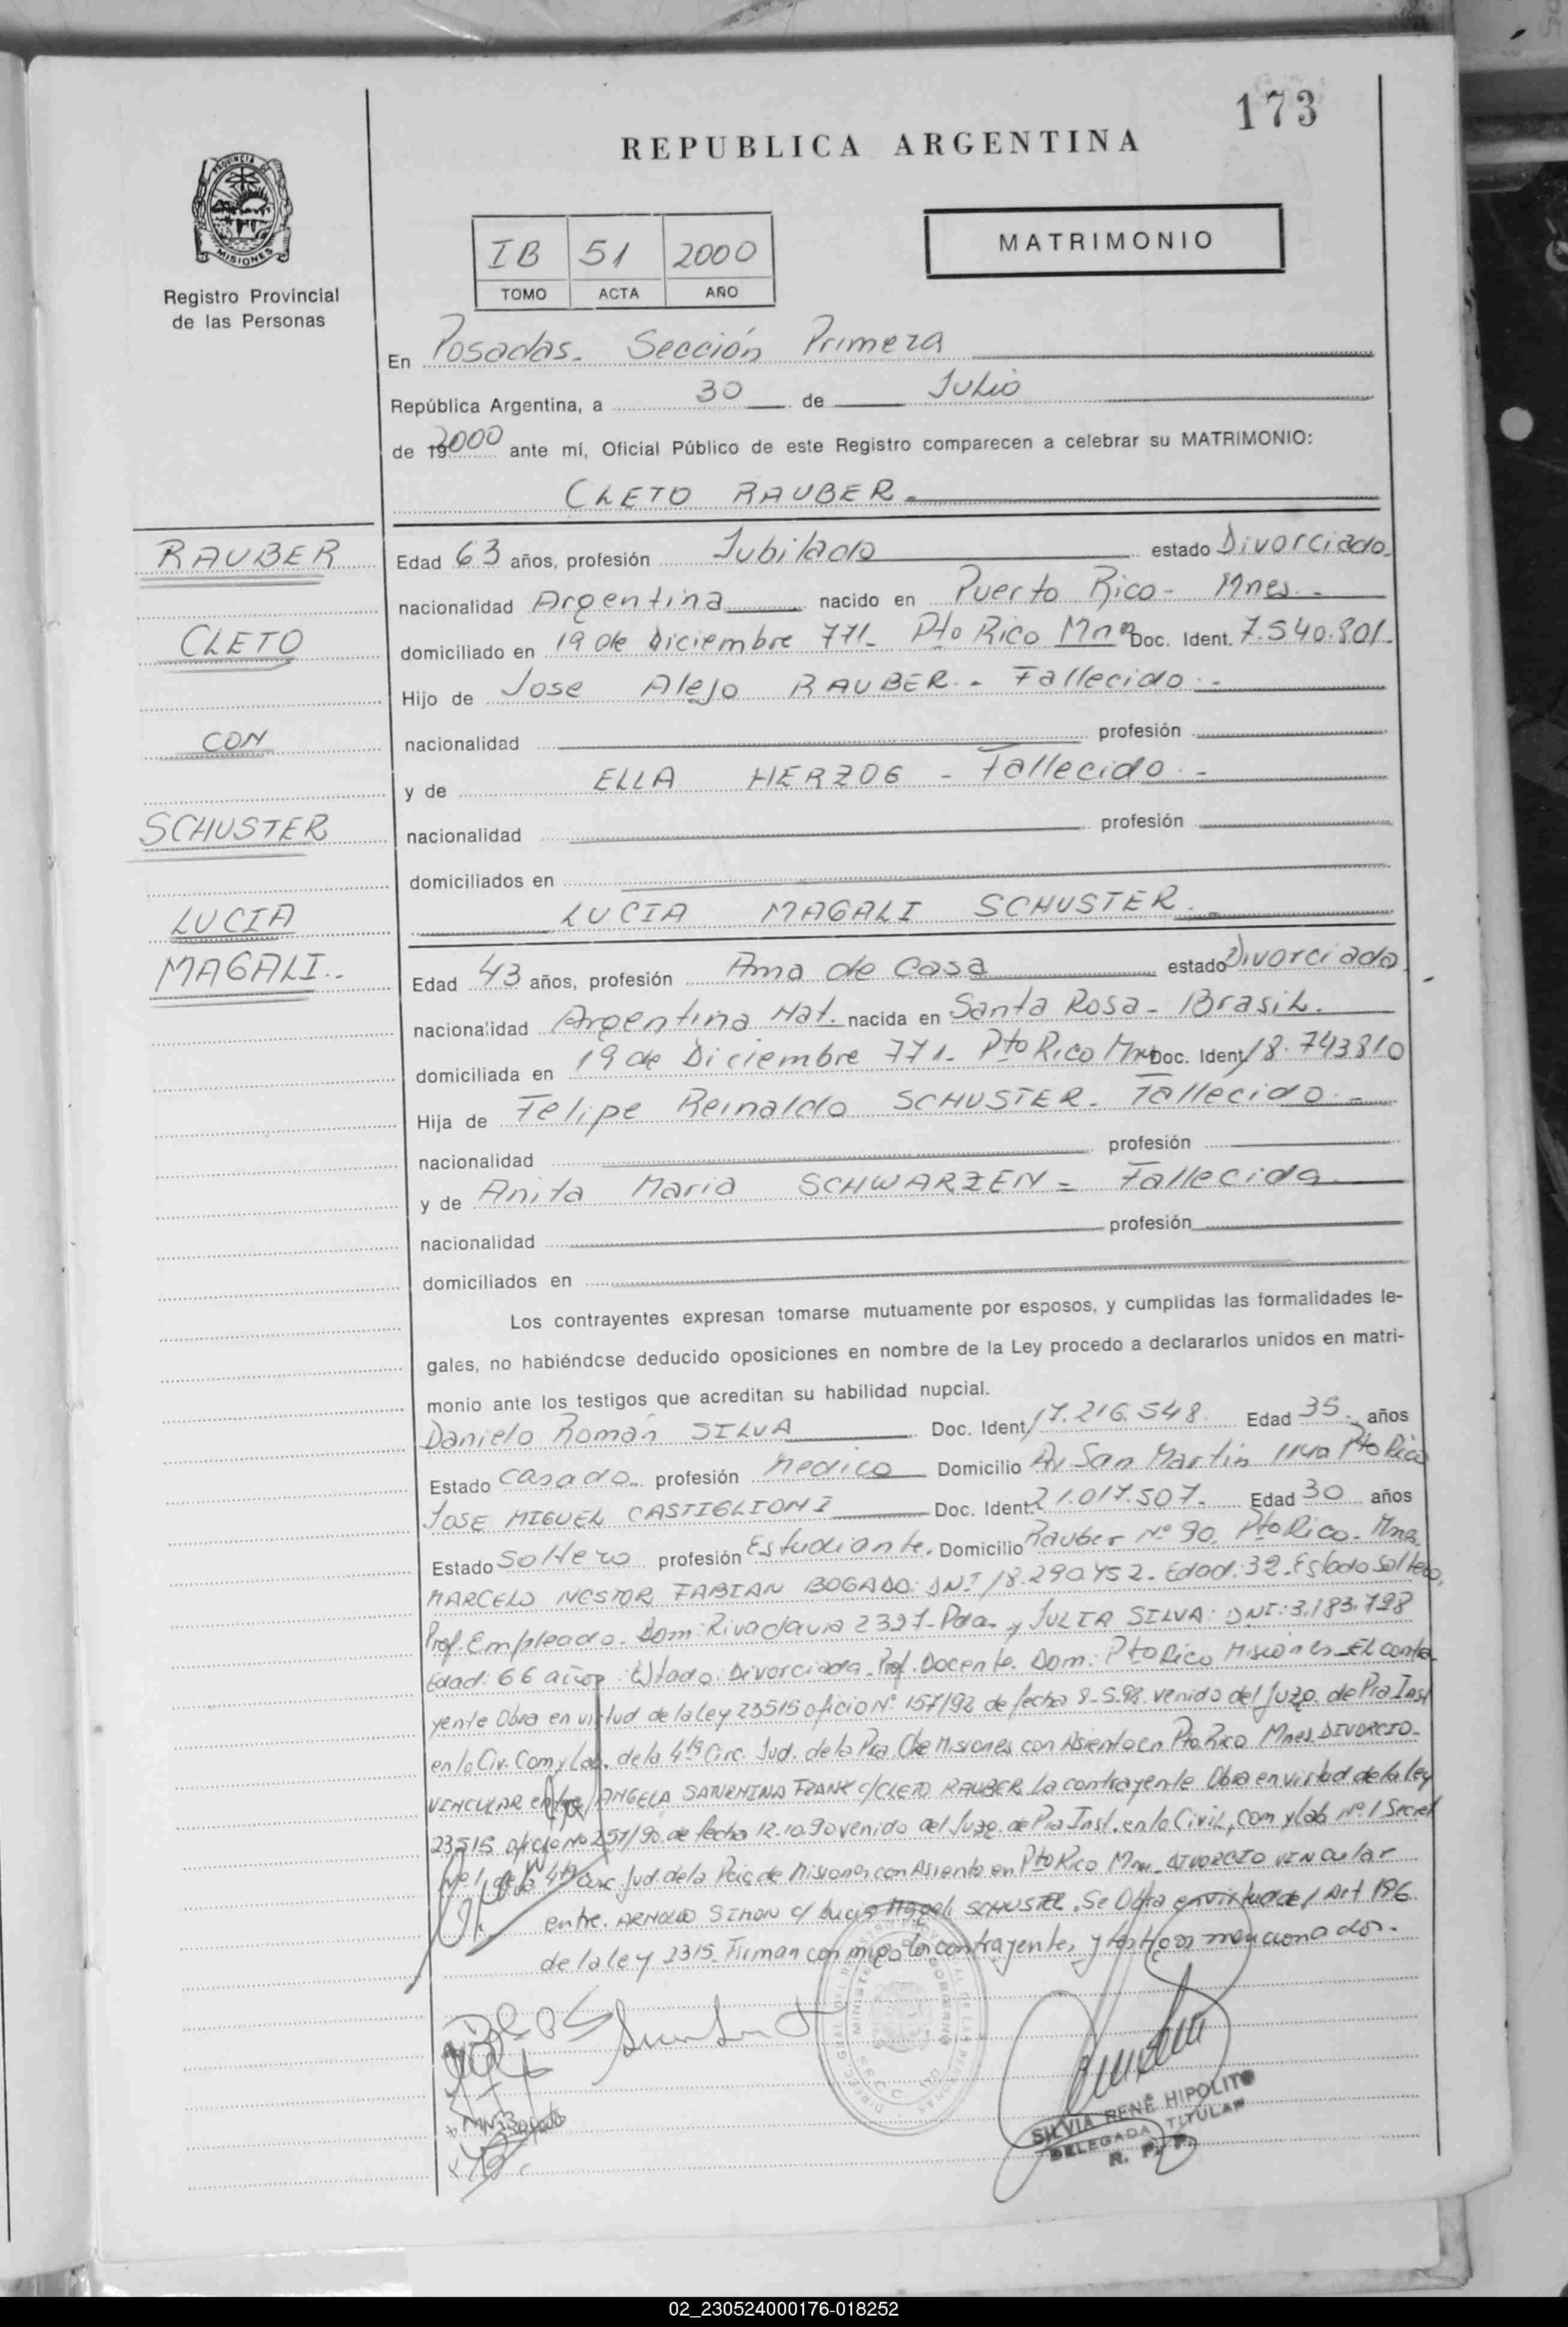 173
REPUBLICA ARGENTINA
PROVINCIA DE
MISIONES
Registro Provincial
de las Personas
IB 51 2000
TOMO ACTA AÑO
MATRIMONIO
En Posadas. Sección Primera
República Argentina, a 30 de Julio
de 2000 ante mí, Oficial Público de este Registro comparecen a celebrar su MATRIMONIO:
CLETO RAUBER.
RAUBER
CLETO
CON
SCHUSTER
LUCIA
MAGALI..
Edad 63 años, profesión Jubilado estado Divorciado
nacionalidad Argentina nacido en Puerto Rico - Mnes. -
domiciliado en 19 de Diciembre 771- Pto Rico Mnes Doc. Ident. 7.540.801-
Hijo de Jose Alejo RAUBER. - Fallecido. -
nacionalidad profesión
y de ELLA HERZOG - Fallecido. -
nacionalidad profesión
domiciliados en
LUCIA MAGALI SCHUSTER.
Edad 43 años, profesión Ama de Casa estado Divorciada
nacionalidad Argentina Nat. nacida en Santa Rosa - Brasil.
domiciliada en 19 de Diciembre 771- Pto Rico Mnes Doc. Ident. 18.743810
Hija de Felipe Reinaldo SCHUSTER. Fallecido. -
nacionalidad profesión
y de Anita Maria SCHWARZEN = Fallecida
nacionalidad profesión
domiciliados en
Los contrayentes expresan tomarse mutuamente por esposos, y cumplidas las formalidades le-
gales, no habiéndose deducido oposiciones en nombre de la Ley procedo a declararlos unidos en matri-
monio ante los testigos que acreditan su habilidad nupcial.
Danielo Román SILVA Doc. Ident. 17.216.548. Edad 35. años
Estado Casado profesión Medico Domicilio Av. San Martin 1140 Pto Rico
JOSE MIGUEL CASTIGLIONI Doc. Ident. 21.017.507. Edad 30 años
Estado Soltero profesión Estudiante. Domicilio Rauber Nº 90. Pto Rico - Mnes.
MARCELO NESTOR FABIAN BOGADO: DNI 18.290.452. Edad: 32. Estado Soltero,
Prof. Empleado. Dom: Rivadavia 2397- Pdas y JULIA SILVA: DNI: 3.183.798
Edad: 66 años. Estado: Divorciada. Prof. Docente. Dom: Pto Rico Misiones. El contra-
yente Obra en virtud de la Ley 23515 oficio Nº 157/92 de fecha 8-5-98. venido del Juzg. de Pra Inst
en lo Civ. Com y Lab. de la 4ta Circ. Jud. de la Pcia. De Misiones con Asiento en Pto Rico Mnes. DIVORCIO
VINCULAR entre ANGELA SATURNINA FRANK C/CLETO RAUBER La contrayente Obra en virtud de la ley
23515 oficio Nº 257/90 de fecha 12-10-90 venido del Juzg. de Pra Inst. en lo Civil, com y Lab Nº 1 Secret
Nº 1 de la 4ta Circ. Jud. de la Pcia de Misiones con Asiento en Pto Rico Mnes. DIVORCIO VINCULAR
entre. ARNOLDO SIMON c/ Lucia Magali SCHUSTER. Se Obra en virtud del Art 196
de la ley 2315. Firman con migo los contrayentes, y testigos mencionados.
SILVIA RENÉ HIPOLITO
DELEGADA TITULAR
R. P. P.
02_230524000176-018252